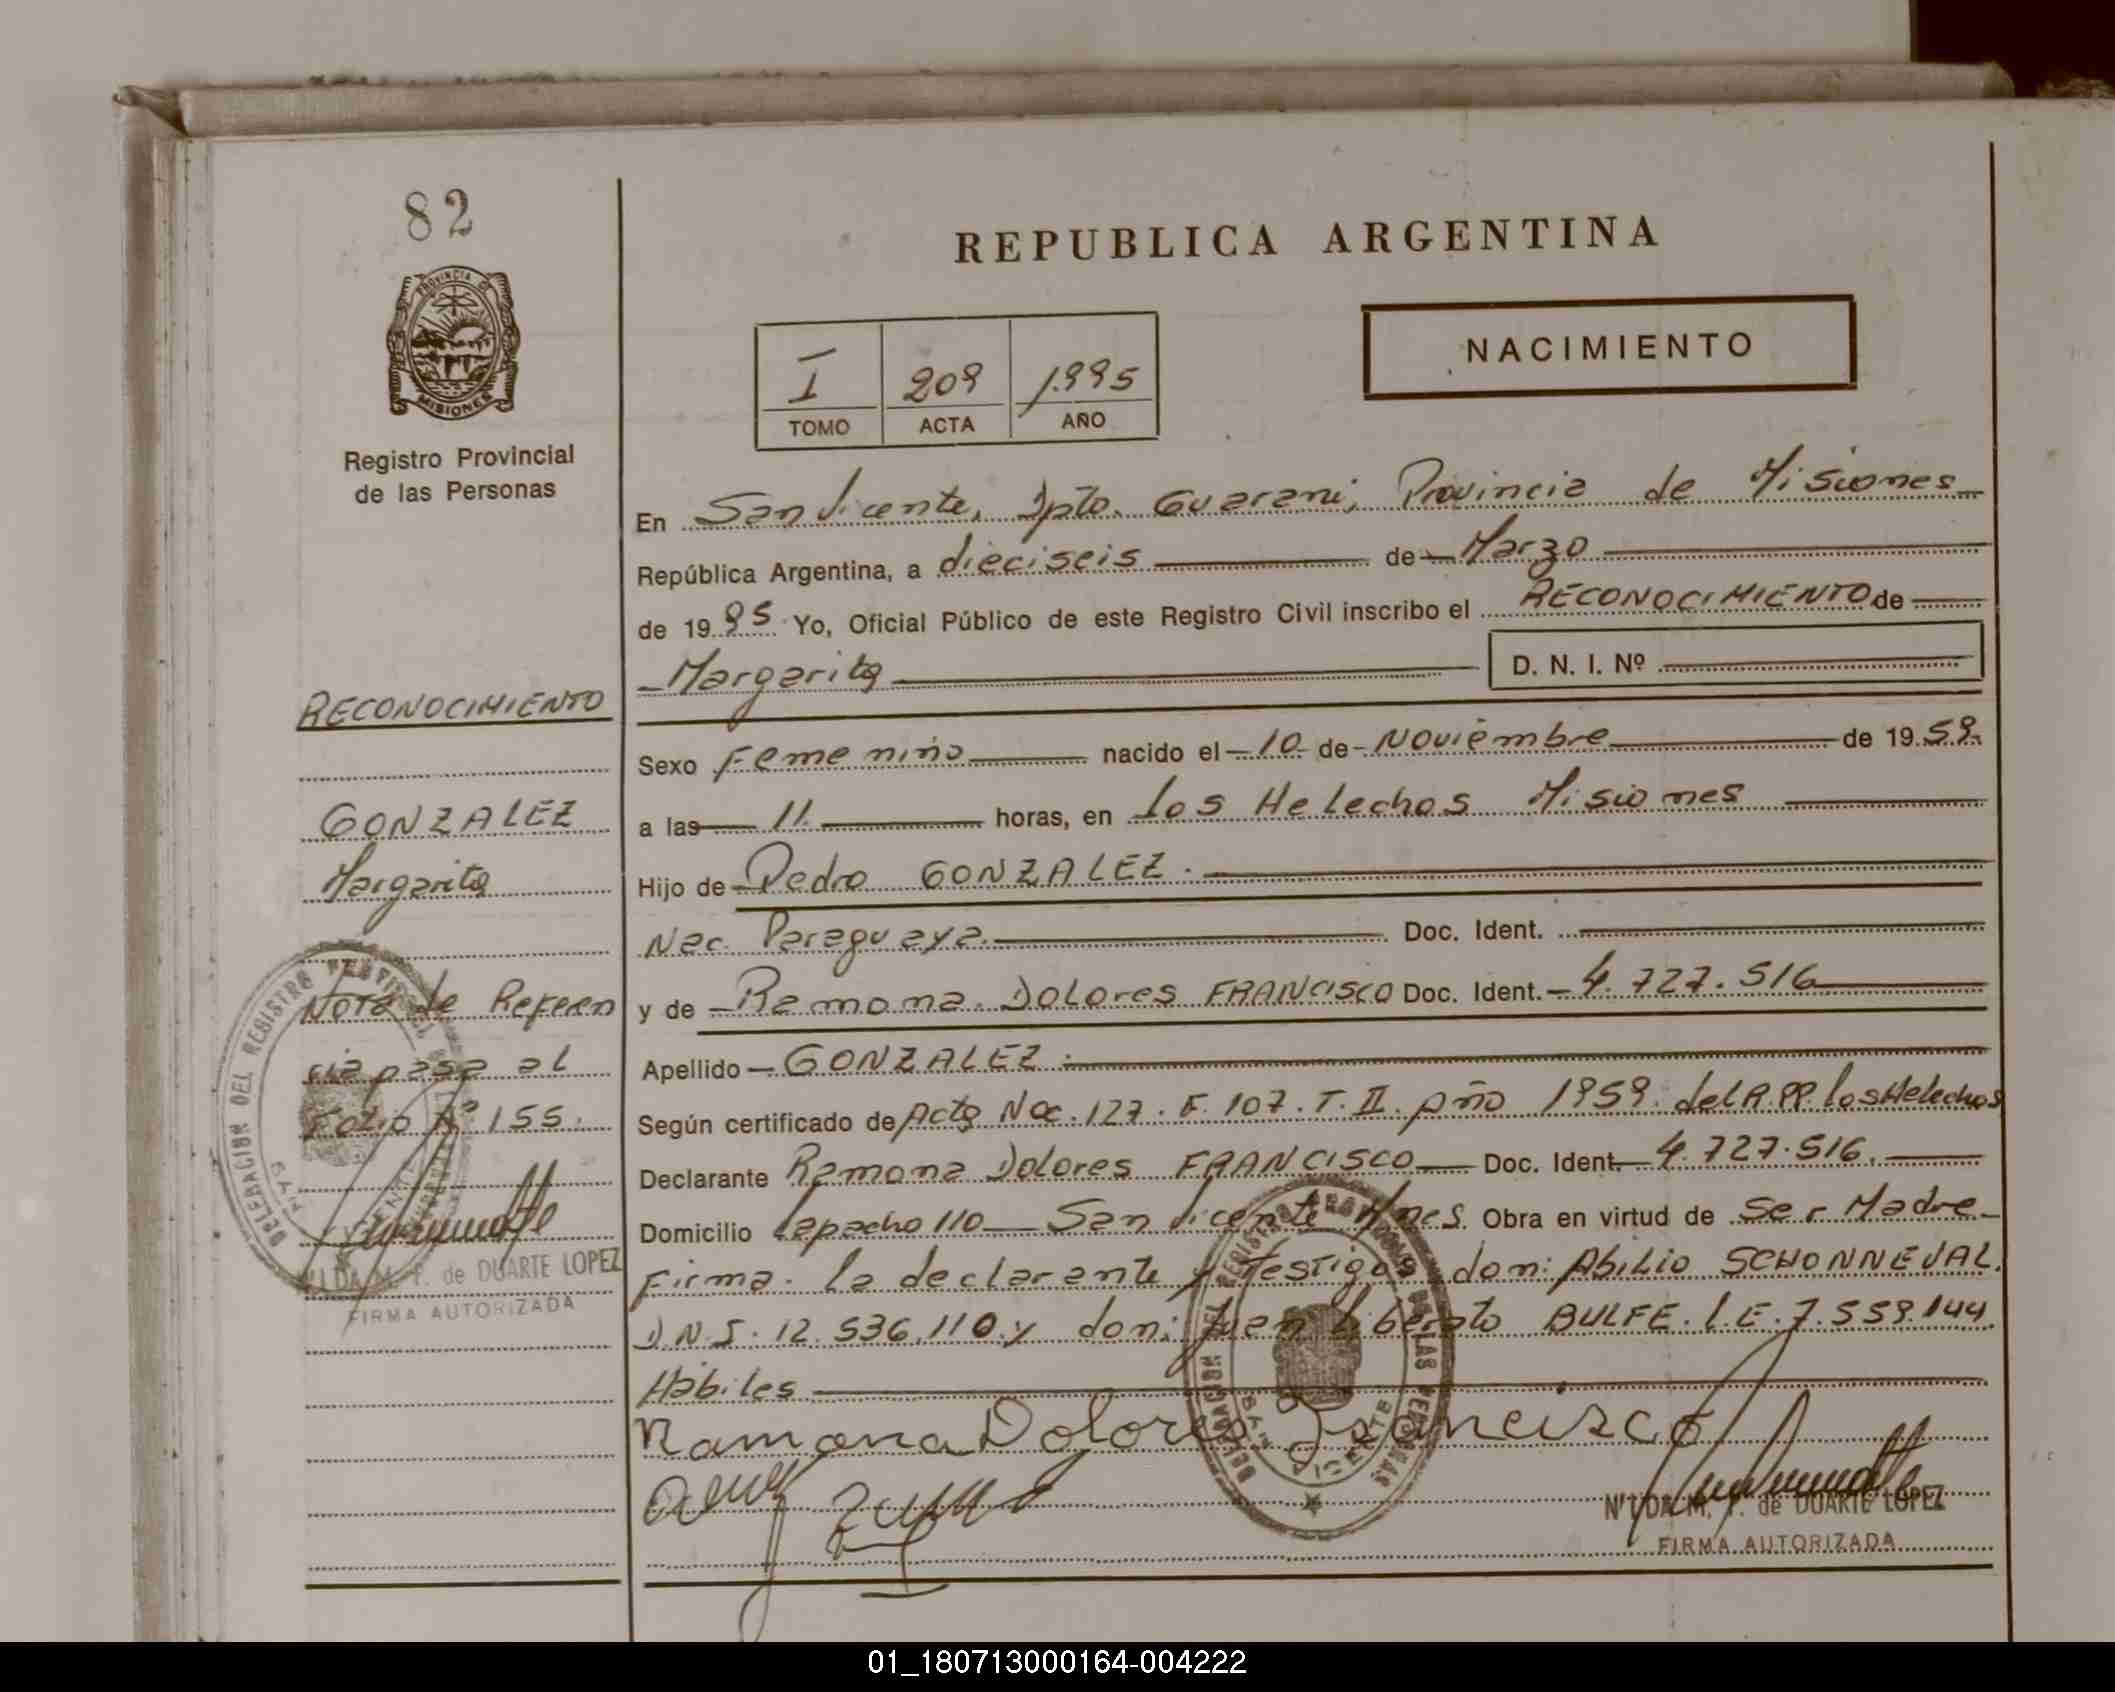 82
REPUBLICA ARGENTINA
PROVINCIA DE
MISIONES
Registro Provincial
de las Personas
I 209 1.995
TOMO ACTA AÑO
NACIMIENTO
En San Vicente, Dpto. Guarani, Provincia de Misiones
República Argentina, a dieciseis de Marzo
de 1995 Yo, Oficial Público de este Registro Civil inscribo el RECONOCIMIENTO de
Margarita D. N. I. Nº
Sexo Femenino nacido el 10 de Noviembre de 1959.
a las 11. horas, en Los Helechos Misiones
Hijo de Pedro GONZALEZ.
Nac. Paraguaya. Doc. Ident.
y de Ramona Dolores FRANCISCO Doc. Ident. 4.727.516
Apellido GONZALEZ.
Según certificado de Acta Nac. 127. F. 107. T. II. Año 1959. del R.PP. los Helechos
Declarante Ramona Dolores FRANCISCO Doc. Ident. 4.727.516.
Domicilio Lapacho 110 San Vicente Mnes. Obra en virtud de Ser Madre
Firma. la declarante y testigos don: Abilio SCHONNEVAL.
D.N.I. 12.536.110. y don: Juan Liberato BULFE. L.E. 7.559.144.
Hábiles
Ramona Dolores Francisco
DELEGACION DEL REGISTRO
SAN VICENTE
DE LAS PERSONAS
DE DUARTE LOPEZ
FIRMA AUTORIZADA
RECONOCIMIENTO
GONZALEZ
Margarita
Nota de Referen
cia pasa al
Folio Nº 155.
DELEGACION DEL REGISTRO
de DUARTE LOPEZ
FIRMA AUTORIZADA
01_180713000164-004222